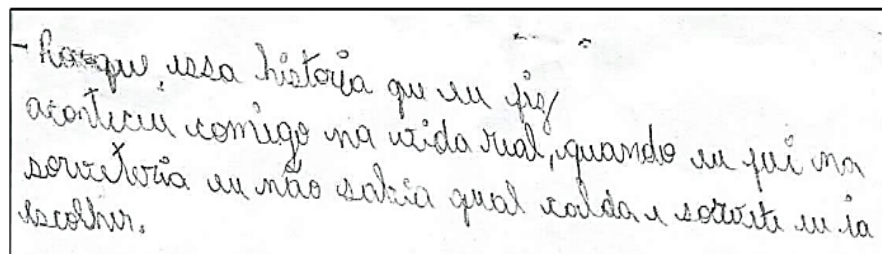 - Porque, essa historia que eu fiz
aconteceu comigo na vida real, quando eu fui na
sorveteria eu não sabia qual calda e sorvete eu ia
escolher.